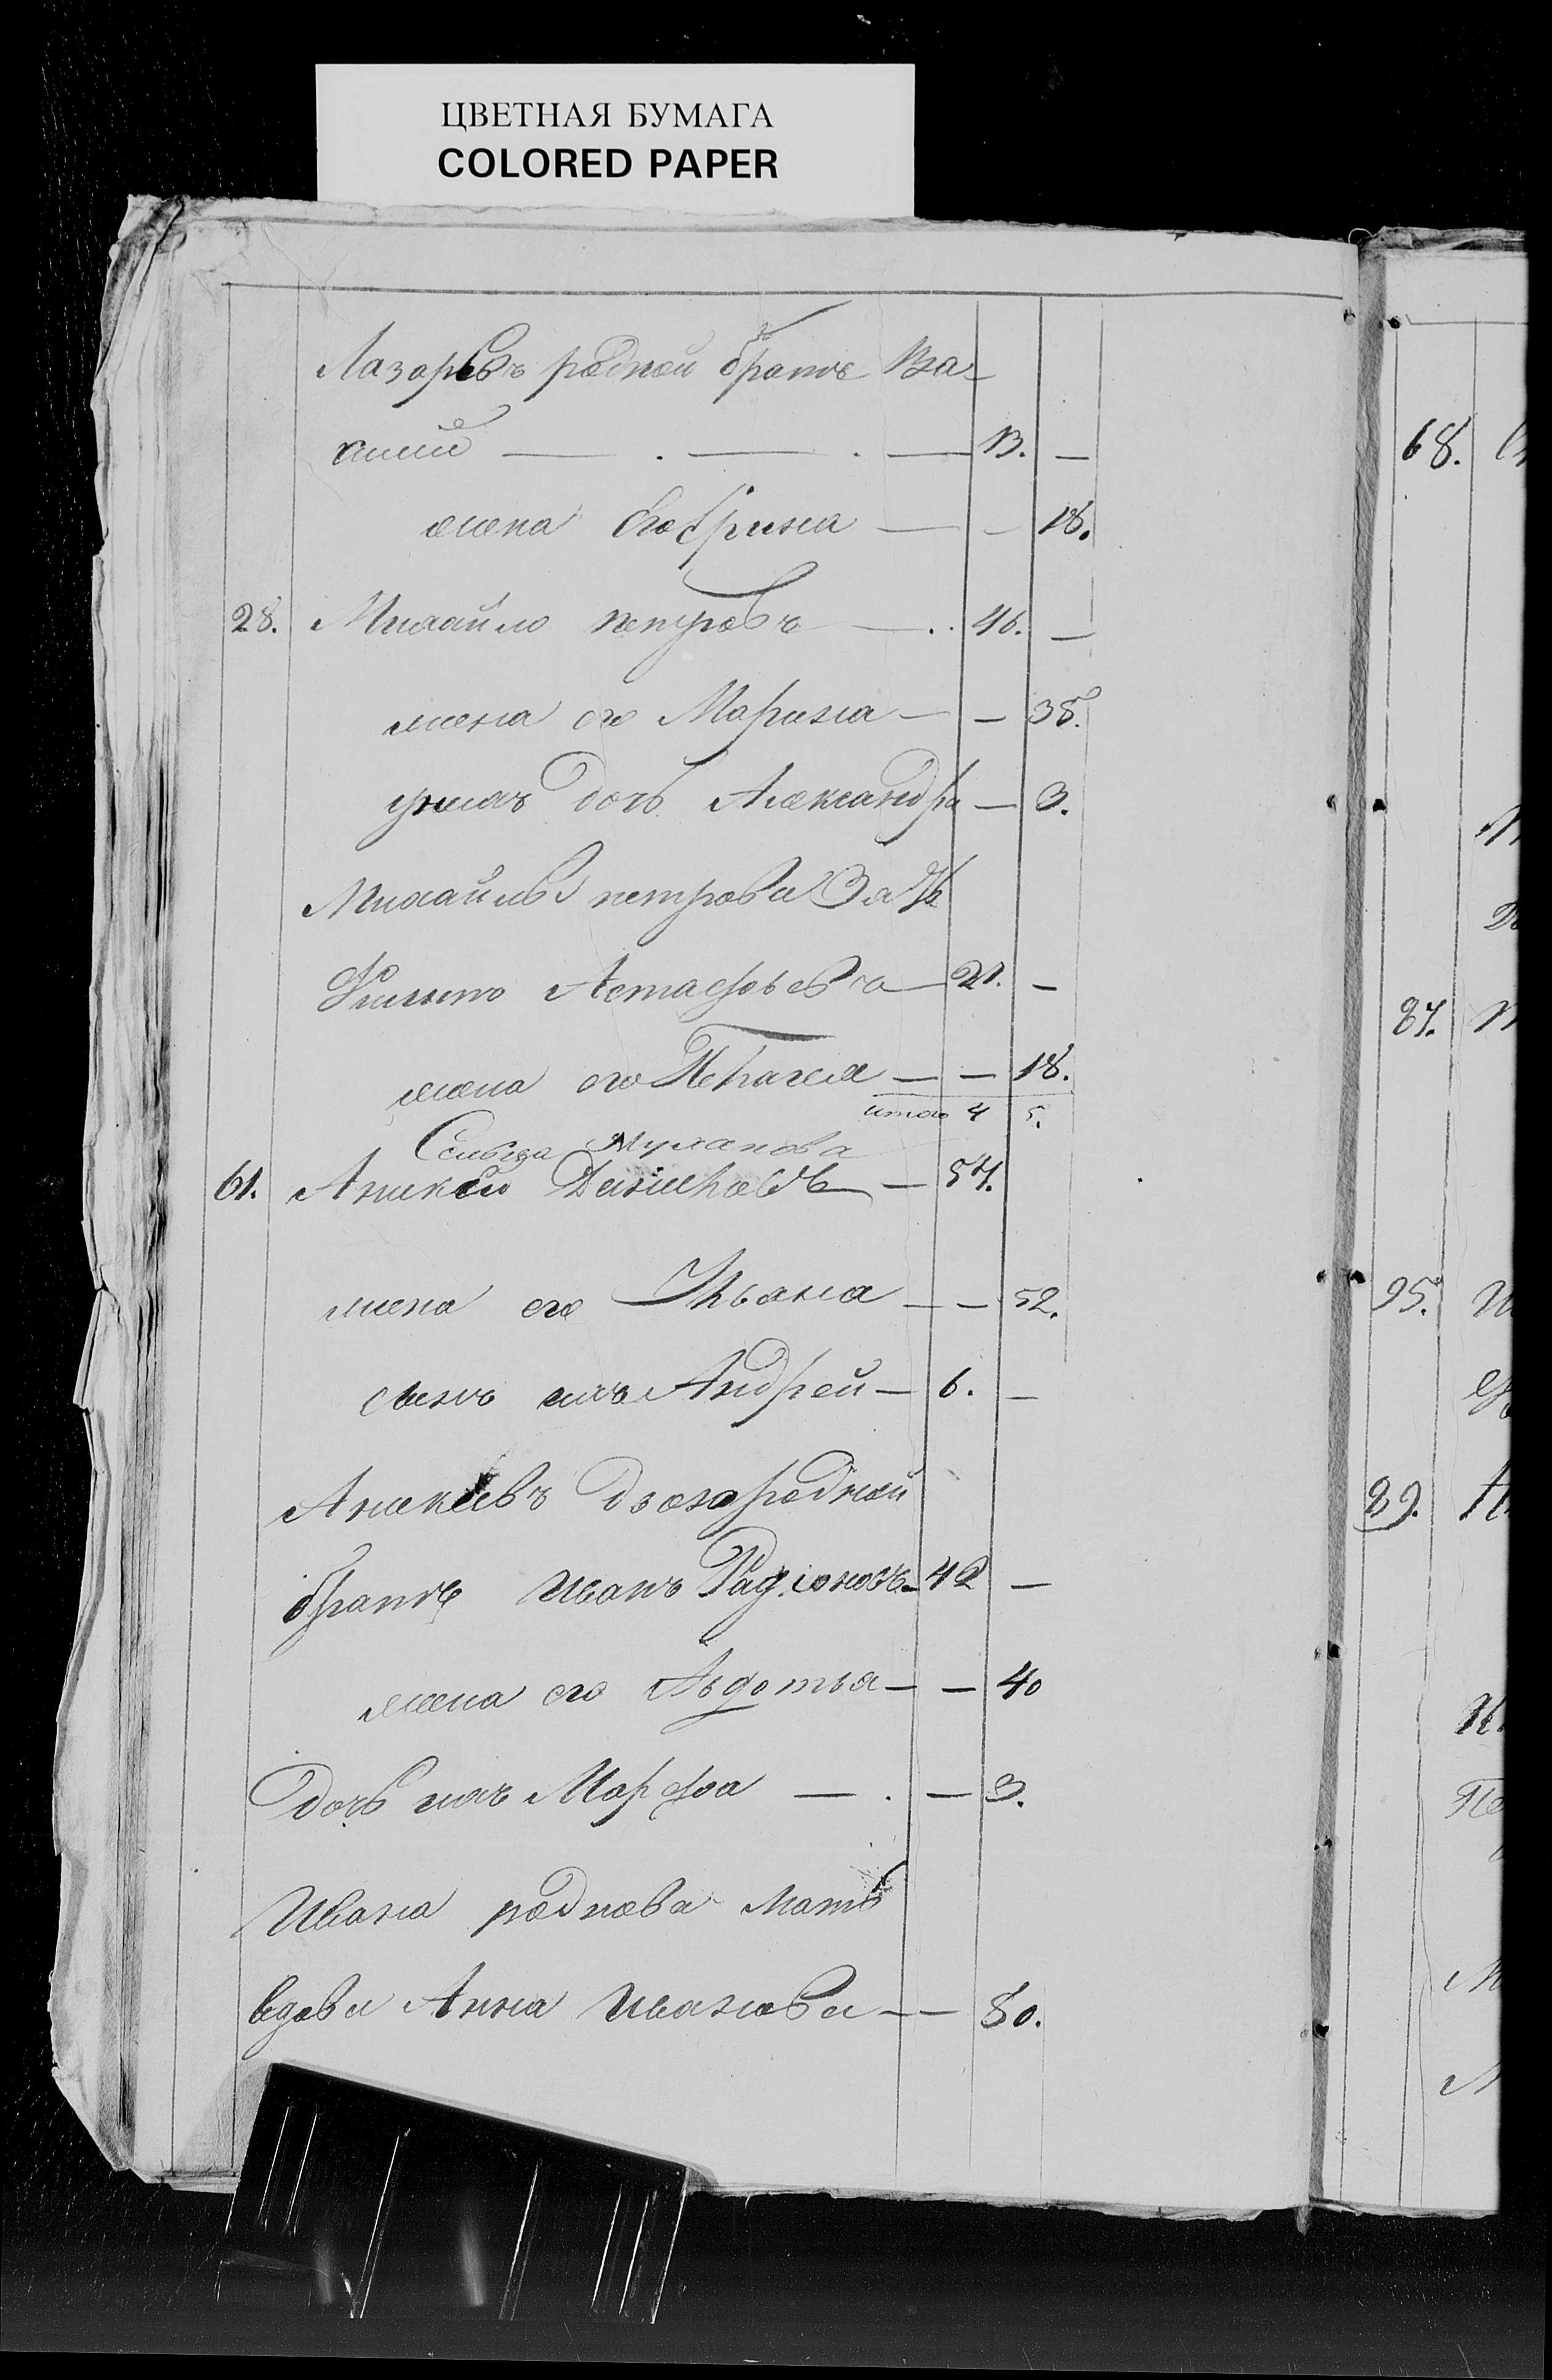 ЦВЕТНАЯ БУМАГА
COLORED PAPER
Лазаревъ родной братъ Ва-
силий — . — . — 13. —
жена его Ирина — — 18.
28. Михайло петровъ — . . 46. —
жена его Марина — — 35.
у нихъ дочь Александра — 3.
Михайлы петрова Зять
Астафьевъ — 21. —
жена его Пелагея — — 18.
итого 4 5.
Сельца
61. Аникей — 57.
жена его Ульяна — — 52.
сынъ ихъ Андрей — 6. —
Аникеевъ двоюродной
братъ Иванъ Радионовъ — 42 —
жена его Авдотья — — 40
дочь ихъ Марфа — . — 3.
Ивана роднова мать
вдова Анна Иванова — — 80.
68.
87.
95.
89.